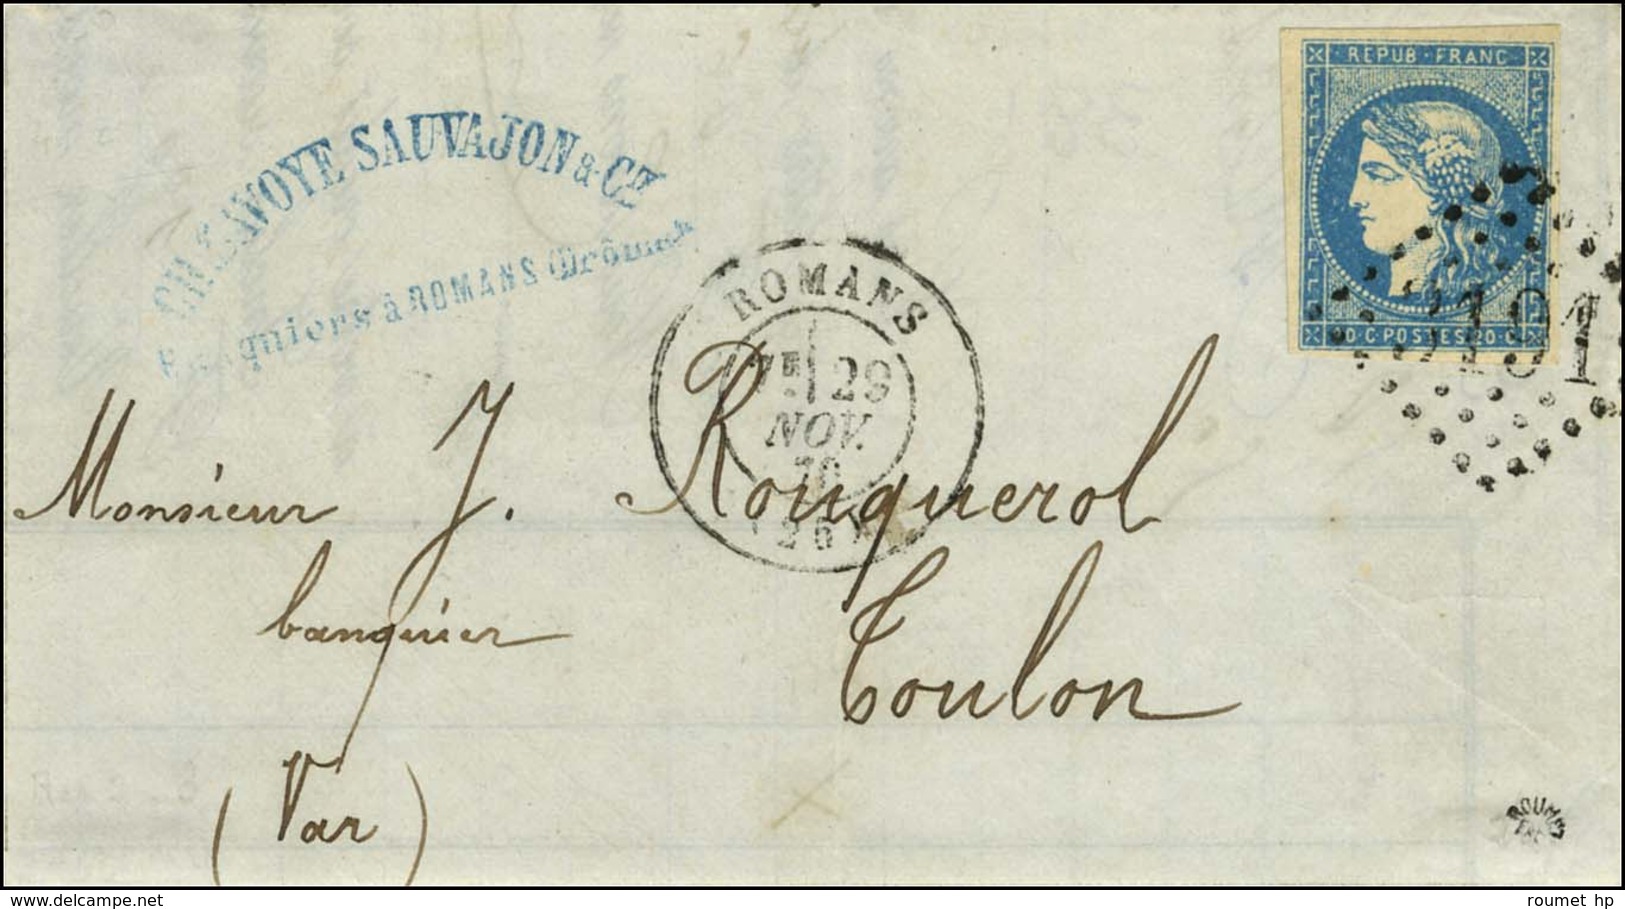 REPUB · FRANC
SAUVAJON & Cie
Banquiers à ROMANS (Drôme)
ROMANS
29
NOV.
70
(26)
3191
20 C POSTES 20 C
Monsieur J. Rouquerol
banquier
Toulon
(Var)
ROUMET
roumet hp